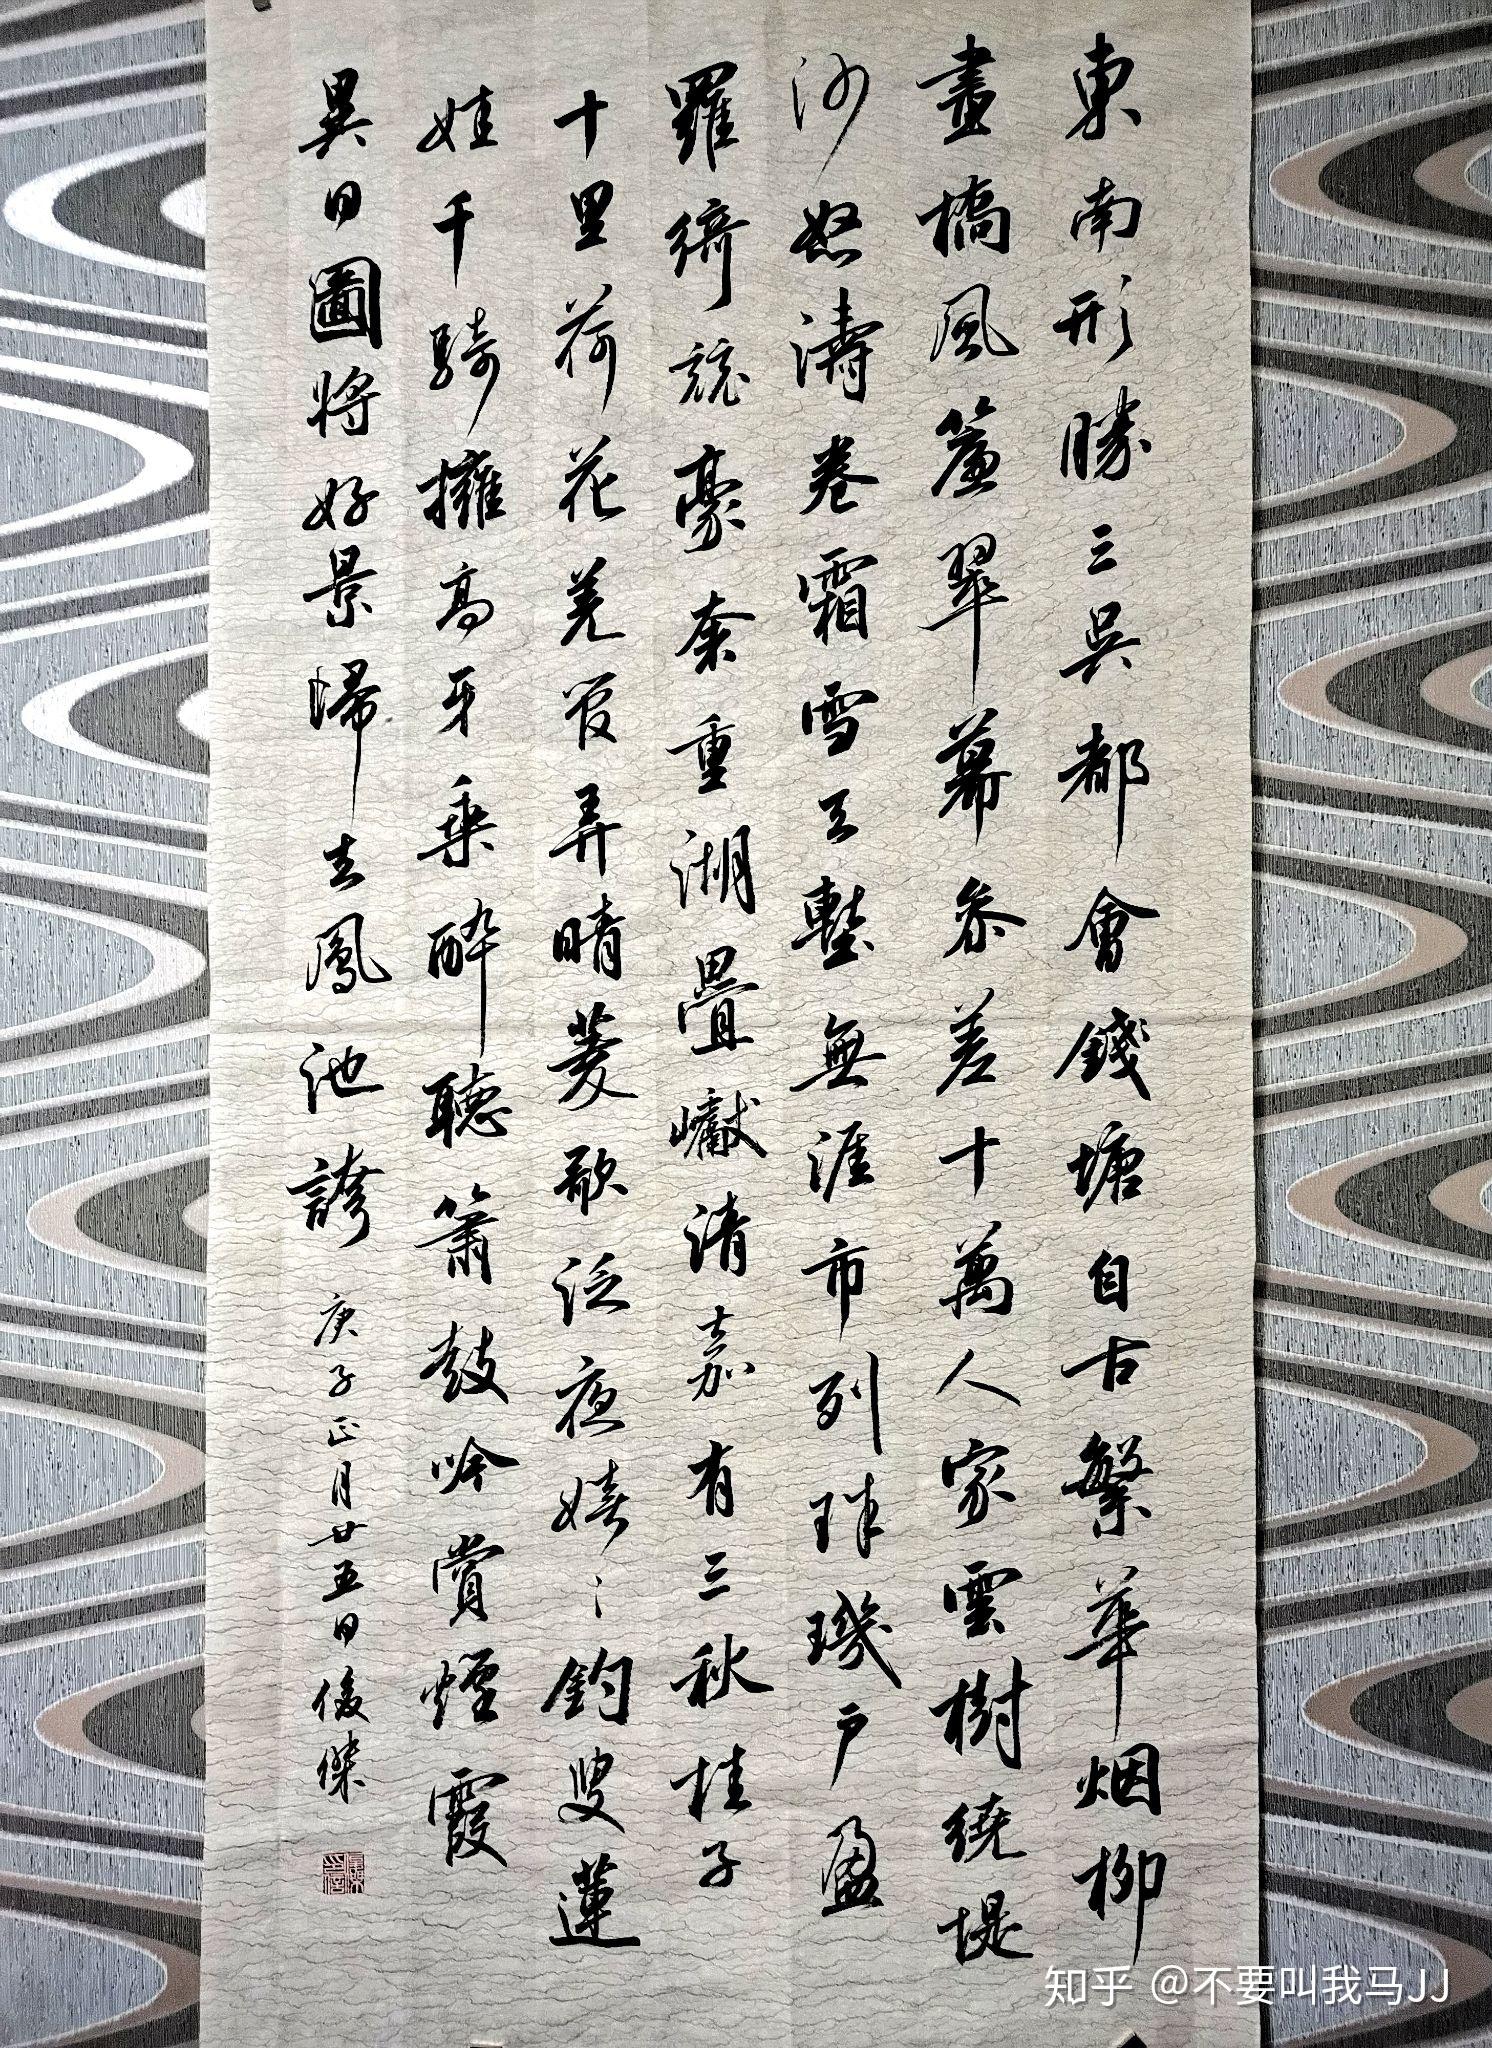 東南形勝三吳都會錢塘自古繁華烟柳
畫橋風簾翠幕參差十萬人家雲樹繞堤
沙怒濤卷霜雪天塹無涯市列珠璣戶盈
羅綺競豪奢重湖疊巘清嘉有三秋桂子
十里荷花羌管弄晴菱歌泛夜嬉〻釣叟蓮
娃千騎擁高牙乘醉聽簫鼓吟賞煙霞
異日圖將好景歸去鳳池誇
庚子正月廿五日俊傑
知乎 @不要叫我马JJ